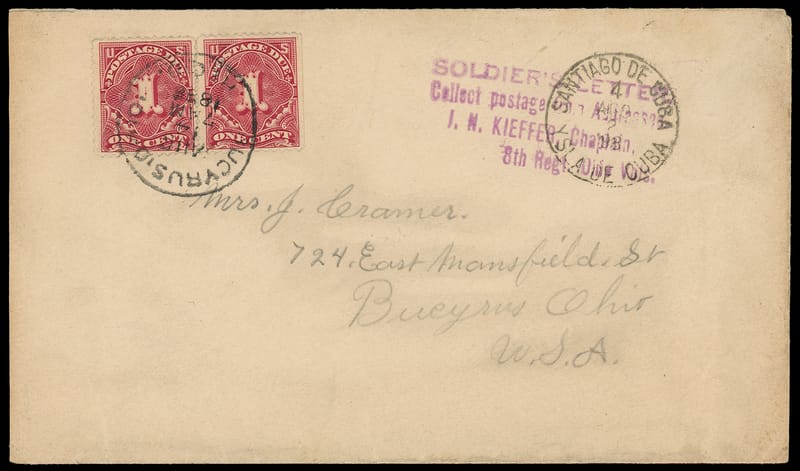 U S
POSTAGE DUE
1
ONE CENT
U S
POSTAGE DUE
1
ONE CENT
SOLDIER'S LETTER
Collect postage
I. N. KIEFFER, Chaplain,
8th Regt. Ohio Vols.
SANTIAGO DE CUBA
4
98
ISLA DE CUBA
Mrs. J. Cramer.
724. East Mansfield. St
Bucyrus Ohio
U.S.A.